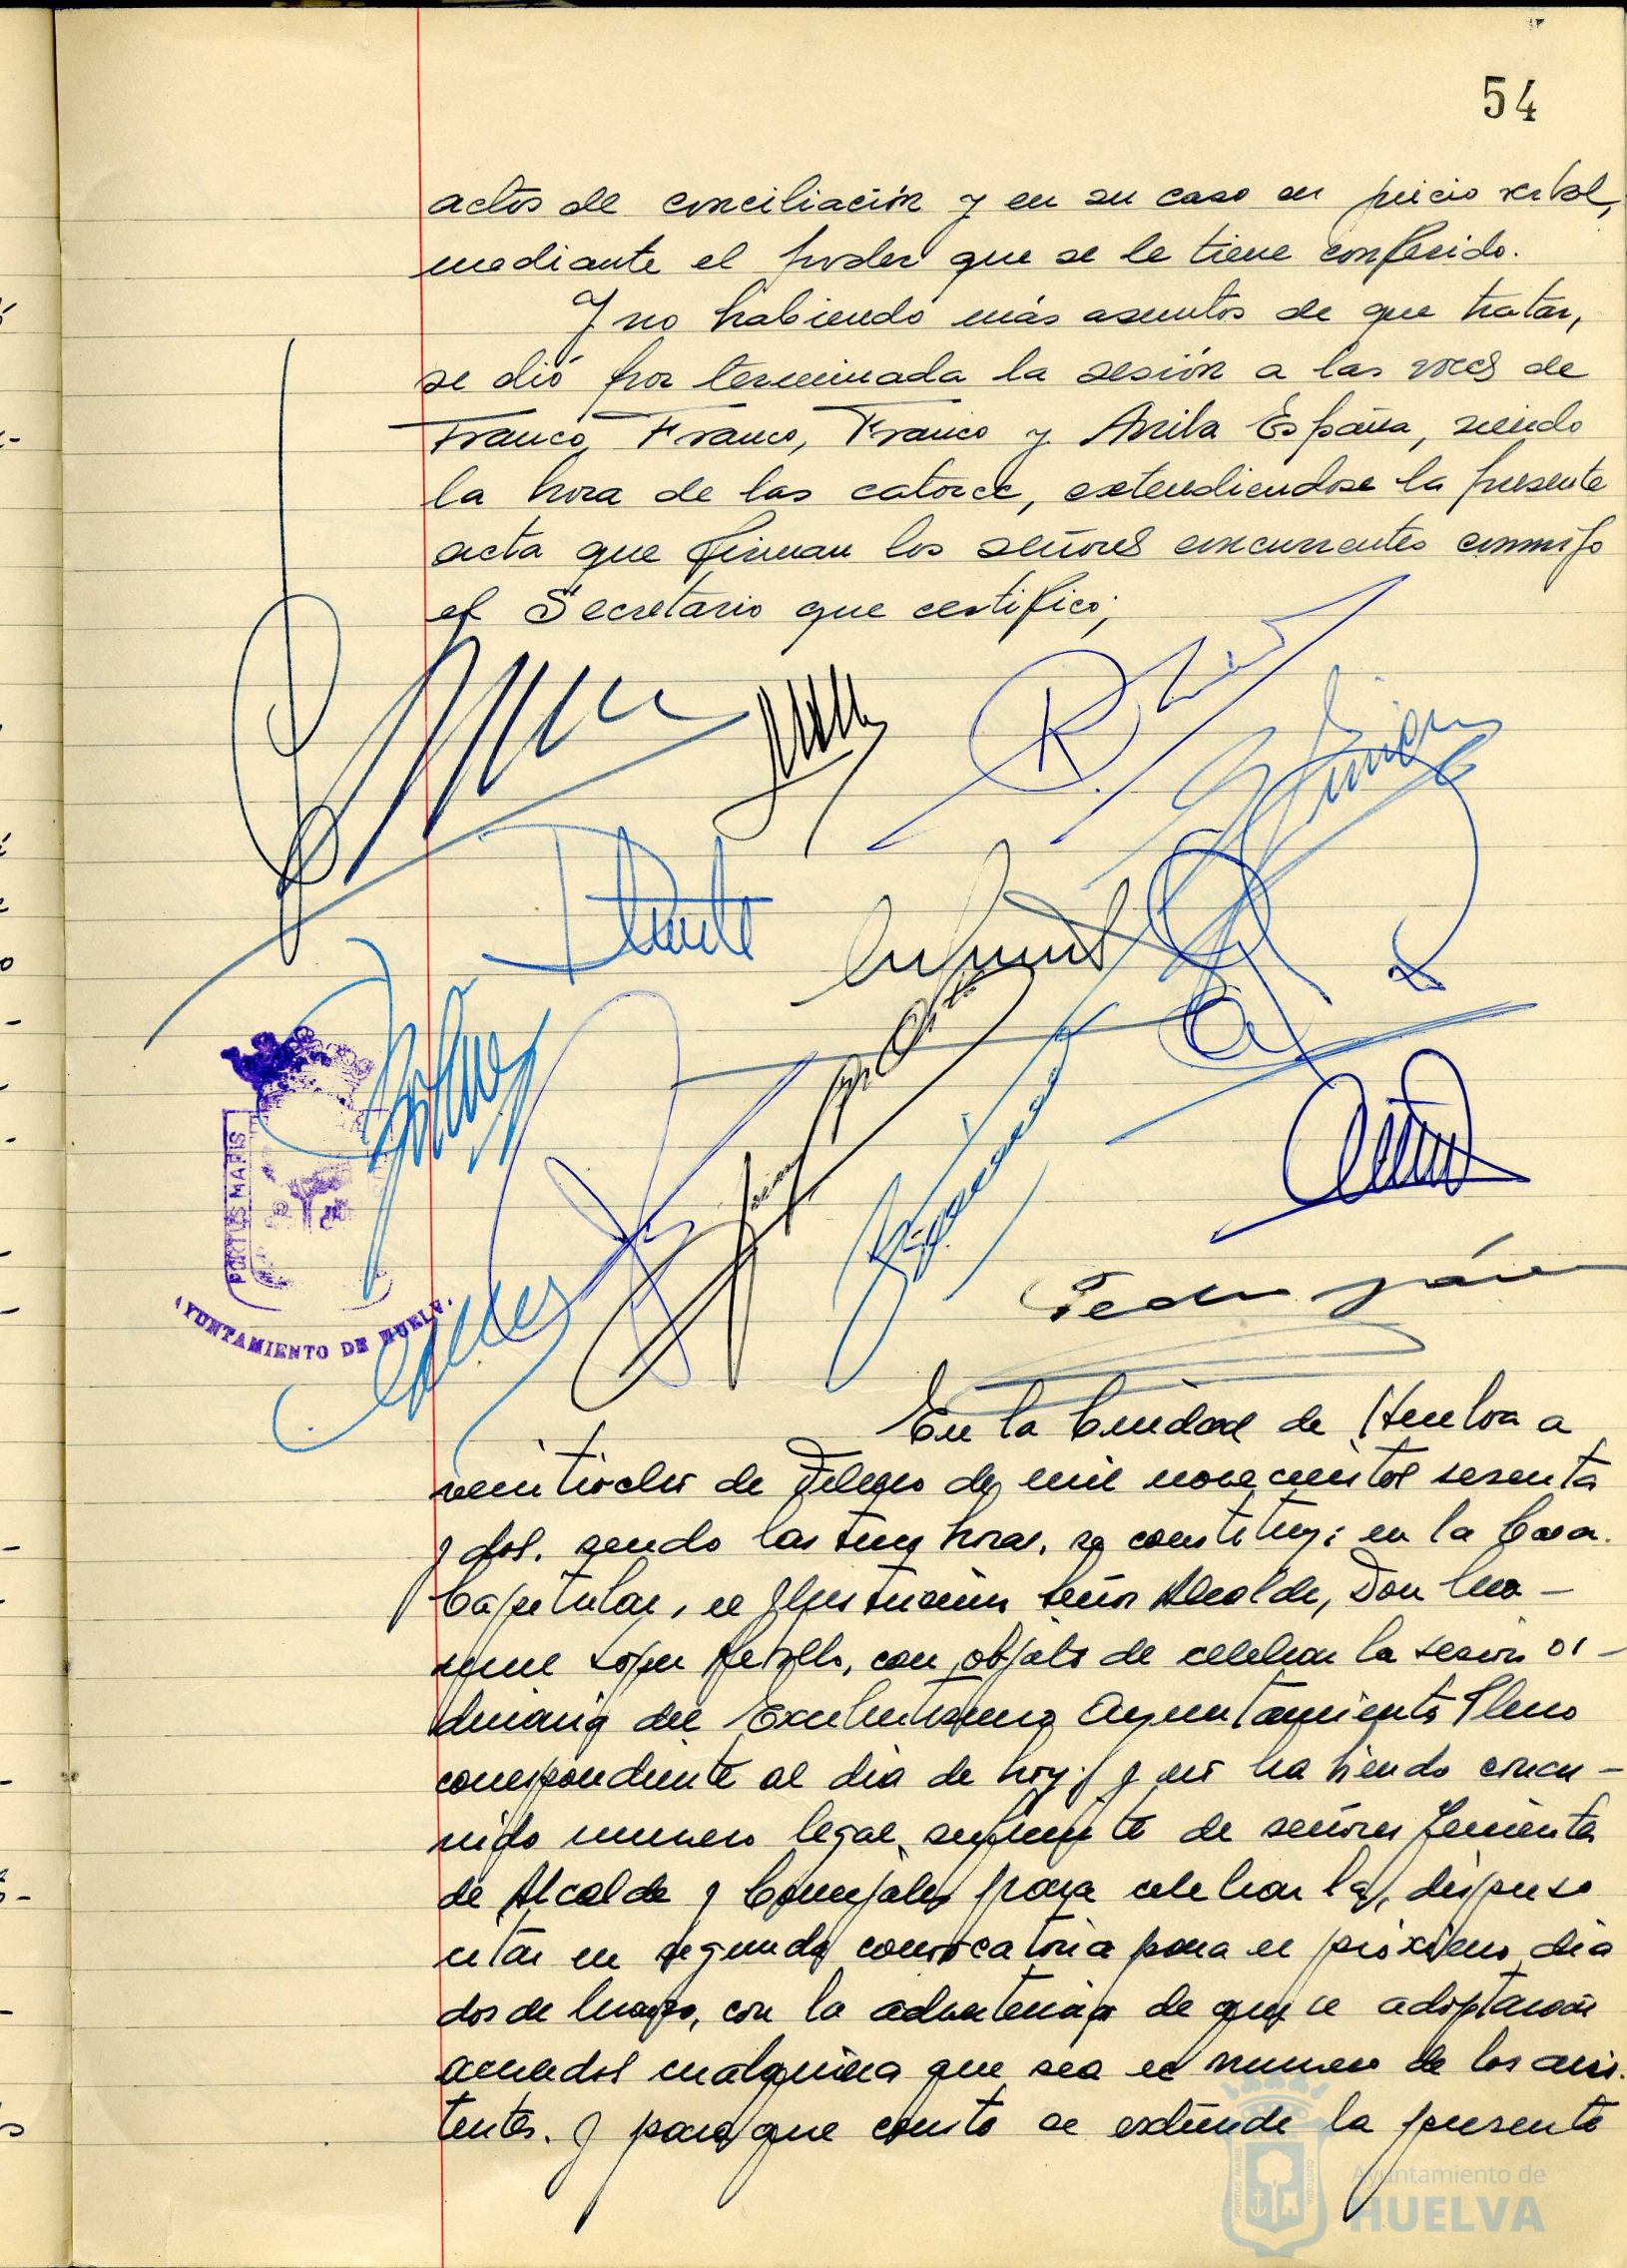 54
actos de conciliación y en su caso en juicio verbal,
mediante el poder que se le tiene conferido.
Y no habiendo más asuntos de que tratar,
se dió por terminada la sesión a las voces de
Franco, Franco, Franco y Arriba España, siendo
la hora de las catorce, extendiendose la presente
acta que firman los señores concurrentes conmigo
el Secretario que certifico;
PORTUS MARIS
AYUNTAMIENTO DE HUELVA
En la Ciudad de Huelva a
de Febrero de mil novecientos sesenta
y dos, siendo las horas, se constituyó en la Casa
Capitular, el Ilustrísimo señor Alcalde, Don
con objeto de celebrar la sesión or-
dinaria del Excelentísimo Ayuntamiento Pleno
correspondiente al dia de hoy; y no habiendo concu-
rrido número legal suficiente de señores Tenientes
de Alcalde y Concejales para celebrarla, dispuso
citar en segunda convocatoria para el próximo dia
dos de Marzo, con la advertencia de que se adoptarán
acuerdos cualquiera que sea el número de los asis-
tentes. Y para que conste se extiende la presente
Ayuntamiento de
HUELVA